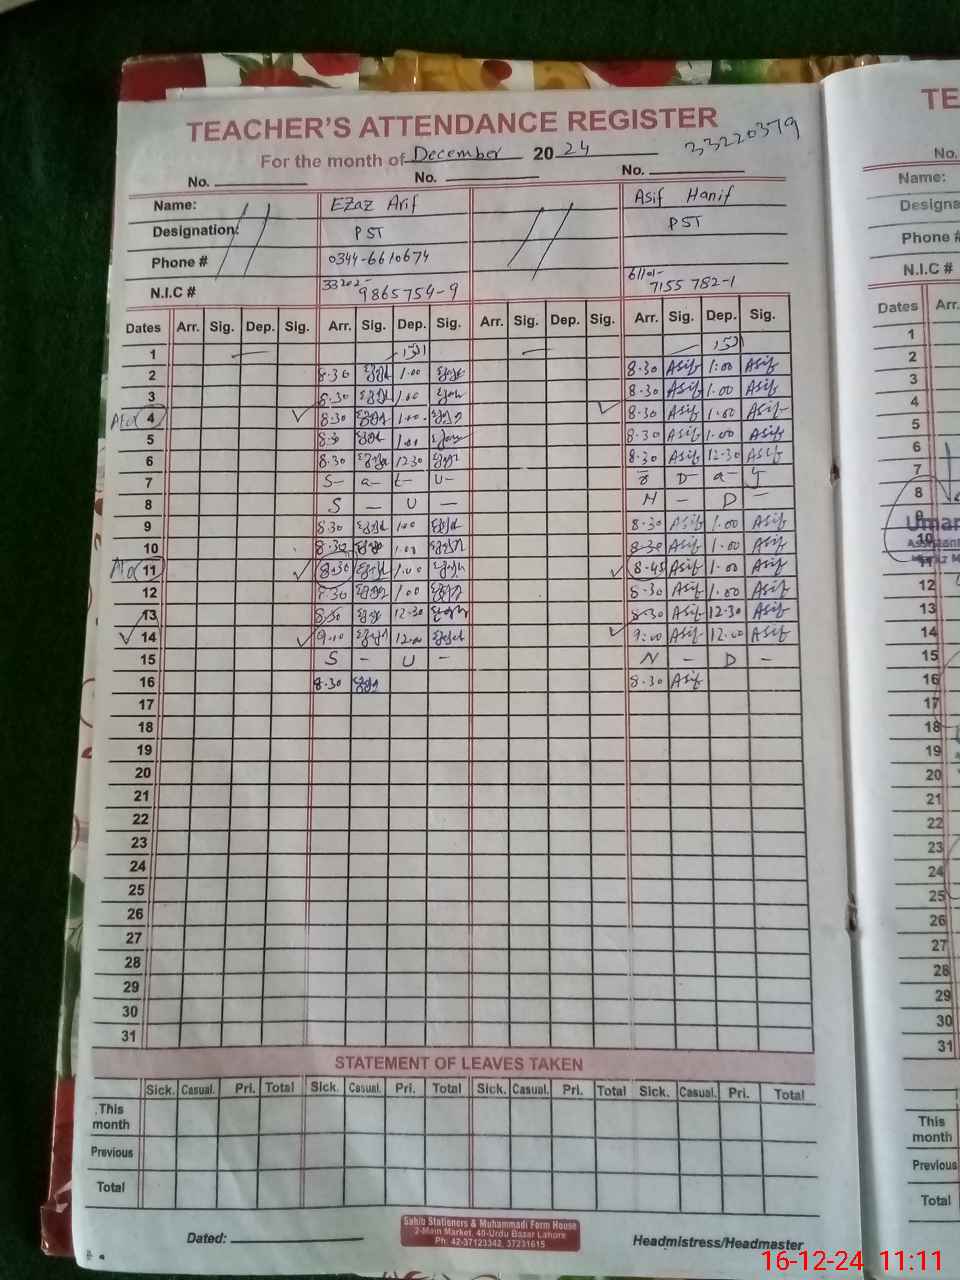 TEACHER'S ATTENDANCE REGISTER
TE
For the month of December 20 24 33220379
No. No. No. No.
Name: Ezaz Arif Asif Hanif Name:
Designation: PST PST Designa
Phone # 0344-6610674 Phone #
N.I.C # 33202-9865754-9 61101-7155782-1 N.I.C #
Dates Arr. Sig. Dep. Sig. Arr. Sig. Dep. Sig. Arr. Sig. Dep. Sig. Arr. Sig. Dep. Sig. Dates Arr.
1 1
2 8.30 1.00 8.30 Asif 1.00 Asif 2
3 8.30 1.00 8.30 Asif 1.00 Asif 3
4 8.30 1.00 8.30 Asif 1.00 Asif 4
5 8.30 1.00 8.30 Asif 1.00 Asif 5
6 8.30 12.30 8.30 Asif 12.30 Asif 6
7 S- a- t- U- D- a- 7
8 S - U - N - D - 8
9 8.30 1.00 8.30 Asif 1.00 Asif 9
Umar
10 8.30 1.00 8.30 Asif 1.00 Asif 10
11 8.30 1.00 8.45 Asif 1.00 Asif 11
12 8.30 1.00 8.30 Asif 1.00 Asif 12
13 8.30 12.30 8.30 Asif 12.30 Asif 13
14 9.00 12.00 9:00 Asif 12.00 Asif 14
15 S - U - N - D - 15
16 8.30 8.30 Asif 16
17 17
18 18
19 19
20 20
21 21
22 22
23 23
24 24
25 25
26 26
27 27
28 28
29 29
30 30
31 31
STATEMENT OF LEAVES TAKEN
Sick. Casual. Pri. Total Sick. Casual. Pri. Total Sick. Casual. Pri. Total Sick. Casual. Pri. Total
This month This month
Previous Previous
Total Total
Sahib Stationers & Muhammadi Form House
2-Main Market, 40-Urdu Bazar Lahore
Ph. 42-37123342, 37231615
Dated: Headmistress/Headmaster
16-12-24 11:11